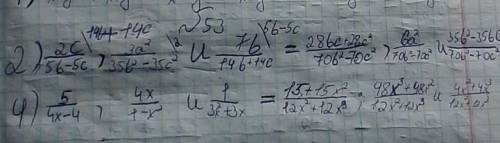 №53
2) 2c/5b-5c \14b+14c, 3a²/35b²-35c² \2 и 7b/14b+14c \5b-5c = 28bc+28c²/70b²-70c², 6a²/70b²-70c² и 35b²-35bc/70b²-70c²
4) 5/4x-4, 4x/1-x² и 1/3x²+3x = 15+15x²/12x²+12x³, 48x³+48x²/12x²+12x³ и 4x²+4x³/12x²+12x³